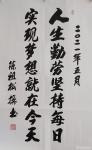 二〇二一年五月
人生勤劳坚持每日
实现梦想就在今天
陈祖松